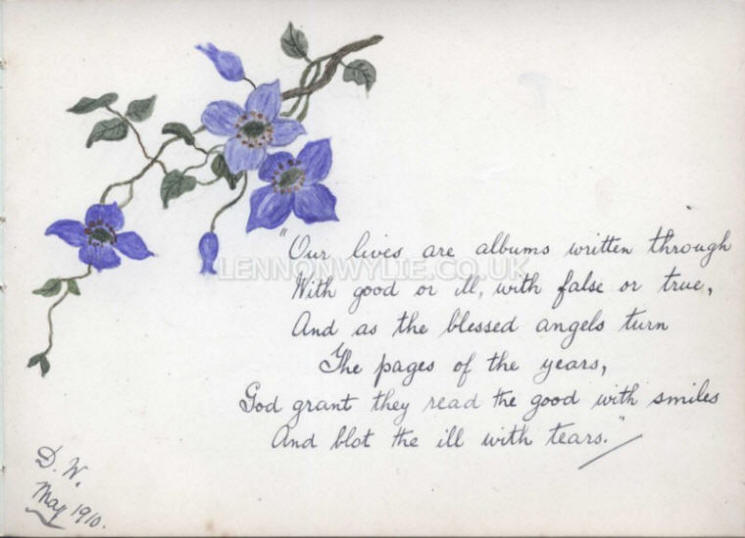 "Our lives are albums written through
LENNONWYLIE.CO.UK
With good or ill, with false or true,
And as the blessed angels turn
The pages of the years,
God grant they read the good with smiles
And blot the ill with tears."
D. W.
May 1910.